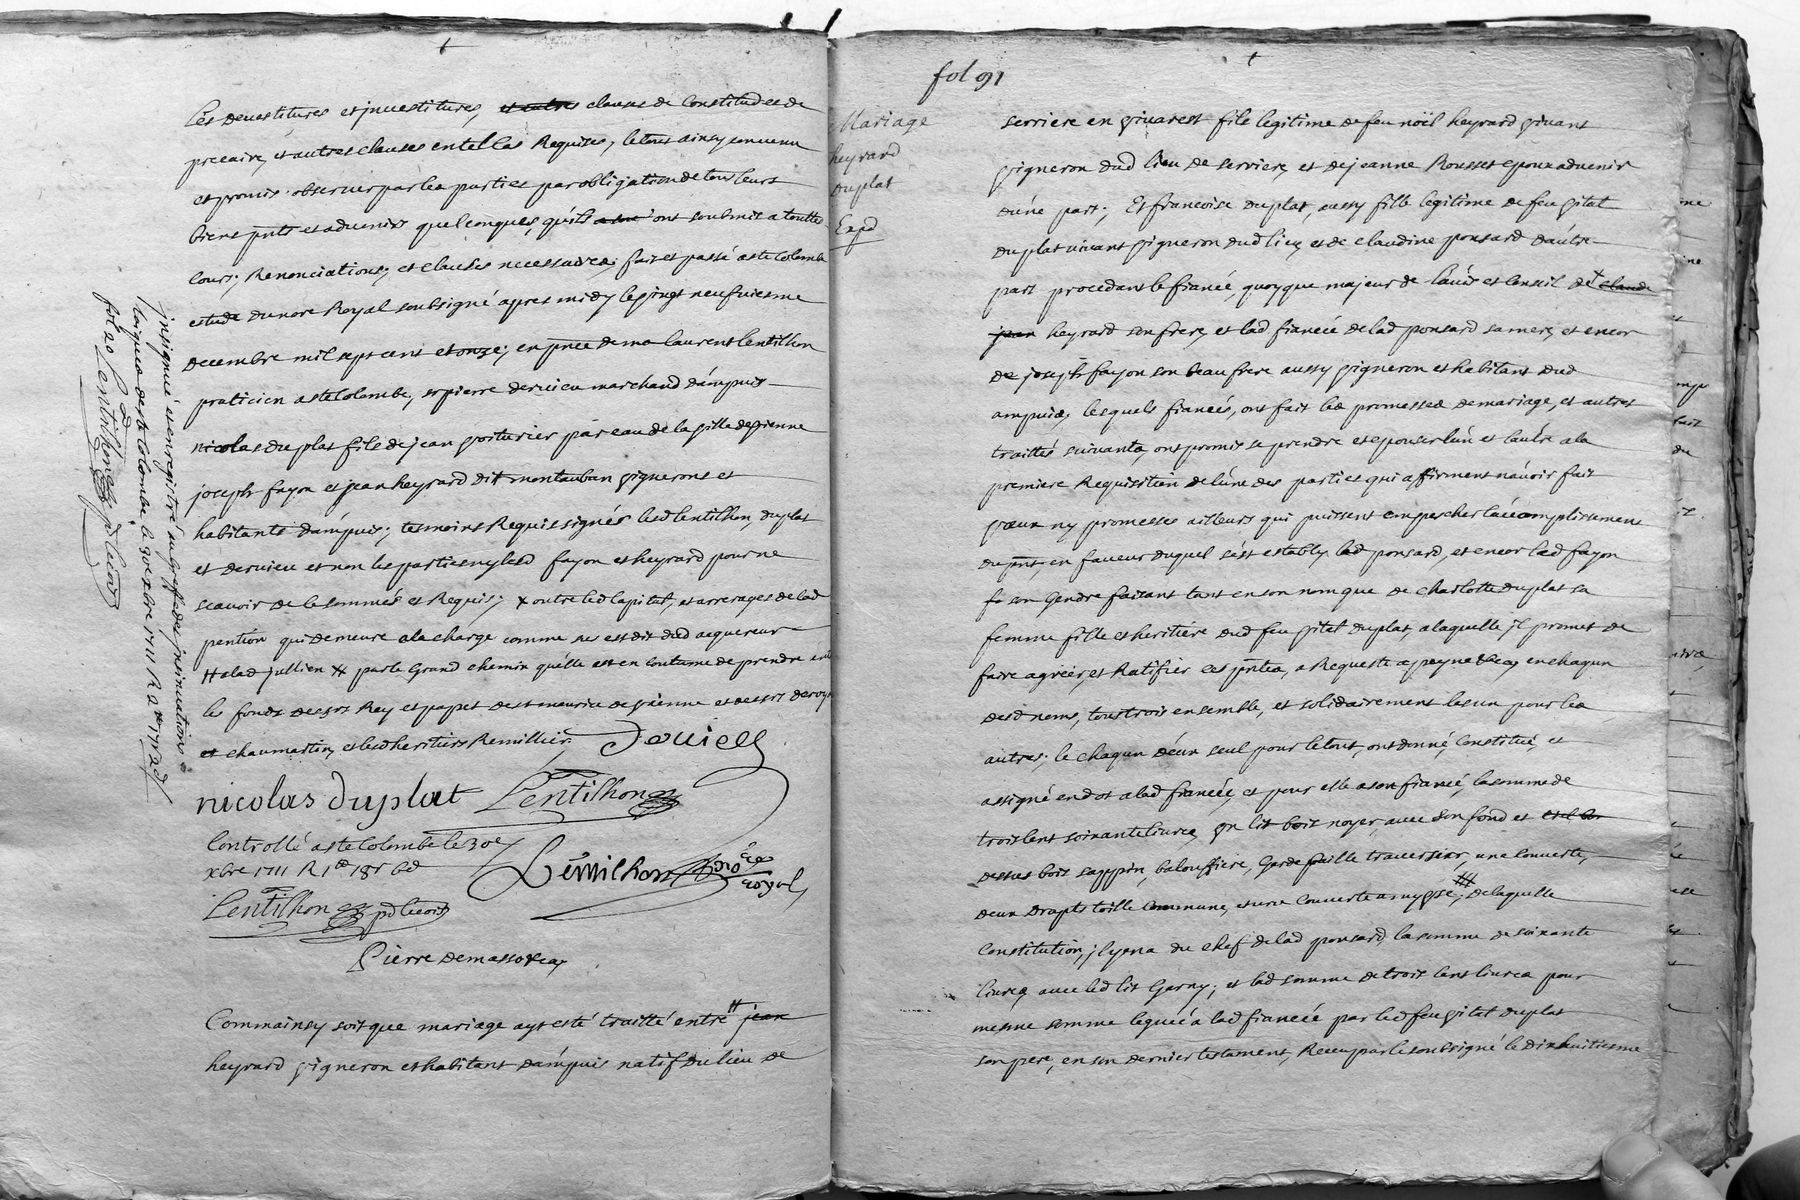 Les devestitures et jnvestitures, et autres clauses de Constitud et de
precaire, et autres clauses en tel cas Requises, le tout ainsy convenu
et promis observer par les parties par obligation de tous leurs
biens pnts et advenirs quelconques, qu'ils ont soubmis a toutte
Cours; Renonciations; et clauses necessaires; fait et passé a ste Colombe
estude du nore Royal soubsigné apres midy le vingt neufuiesme
Decembre mil sept cent et onze; en pnce de me laurent lentilhon
praticien a ste Colombe, et pierre dervieu marchand dámpuis
nicolas duplat fils de jean voiturier par eau de la ville de vienne
joseph fayon et jean heyrard dit montauban vignerons et
habitants dámpuis; tesmoins Requis signés lesd lentilhon, duplat
et dervieu et non les parties ny lesd fayon et heyrard pour ne
scavoir de ce sommés et Requis; x outre led Capital, et arrerages de lad
pention qui demeure a la charge comme sus est dit dud acquereur
# a lad jullien # par le Grand chemin qu'elle est en coutume de prendre
les fonds des srs Rey et papet de st meurice de vienne et
et chaumartin, et lesd heritiers Remillier. Dervieu
nicolas duplat Lentilhon
Controllé a ste Colombe le 30e
xbre 1711 R
Lentilhon
Lentilhon nore
Royal
Pierre demassovea
Comm ainsy soit que mariage ayt esté traitté entre # jean
heyrard vigneron et habitant dámpuis natif du lieu de
jnsignué et enregistré au greffe des jnsinuations
de ste Colombe le 30e xbre 1711 R
fol 20 Lentilhon
fol 91
Mariage
heyrard
Duplat
Expd
serriere en vivarest fils legitime de feu noël heyrard vivant
vigneron dud lieu de serriere, et de jeanne Rousset epoux advenir
dúne part; Et francoise duplat, aussy fille legitime de feu vital
duplat vivant vigneron dud lieu, et de claudine ponsard dáutre
part procedant le fiancé, quoyque majeur de láuis et Conseil de + claude
jean heyrard son frere, et lad fiancée de lad ponsard sa mere, et encor
de joseph fayon son beau frere aussy vigneron et habitant dud
ampuis; lesquels fiancés, ont fait les promesses de mariage, et autres
traittés suivants, ont promis se prendre et epouser lún et láutre a la
premiere Requisition de lúne des parties qui affirment návoir fait
vœux ny promesses ailleurs qui puissent empescher láccomplissement
du pnt, en faveur duquel s'est establý lad ponsard, et encor led fayon
son Gendre faisant tant en son nom que de charlotte duplat sa
femme fille et heritiere dud feu vital duplat, a laquelle jl promet de
faire agréer, et Ratifier ces pntes, a Requeste a peyne &ca, en chaqun
desd noms, tous trois ensemble, et solidairement les un pour les
autres, le chaqun déux seul pour le tout, ont donné, Constitué, et
assigné en dot a lad fiancée, et pour elle a son fiancé, la somme de
trois Cent soixante livres, un lit bois noyer avec son fond et
dessus bois sappin, balouffiere, Garde paille traversier, une Couverte,
deux Drapts toille Commune, et une Couverte ; # de laquelle
Constitution, jl y en a du chef de lad ponsard, la somme de soixante
livres avec led lit Garny; et lad somme de trois Cent livres pour
mesme somme leguée a lad fiancée par led feu vital duplat
son pere, en son dernier testament, Receu par le soubsigné le dixhuitiesme